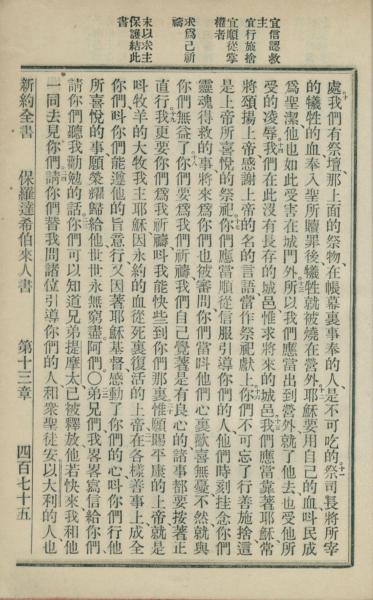 宜信認救
主
宜行施捨
宜順從掌
權者
求爲己祈
禱
末以求主
保護結此
書
處我們有祭壇、那上面的祭物、在帳幕裏事奉的人、是不可吃的祭司長將所宰
的犧牲的血奉入聖所贖罪後、犧牲就被燒在營外、耶穌要用自己的血呌民成
爲聖潔、他也如此受害在城門外、所以我們應當出到營外、就了他去、也受他所
受的凌辱、我們在此沒有長存的城邑、惟求將來的城邑、我們應當靠著耶穌、常
將頌揚上帝感謝上帝的名的言語、當作祭祀獻上、你們不可忘了行善施捨、這
是上帝所喜悅的祭祀、你們應當順從信服引導你們的人、他們時刻挂念你們
靈魂得救的事、將來爲你們也被審問、你們當呌他們心裏歡喜無憂、不然、就與
你們無益了、你們要爲我們祈禱、我們自己覺著是有良心的、諸事都要按著正
直行、我更要你們爲我祈禱、呌我能快些到你們那裏、惟願賜平康的上帝、就是
呌牧羊的大牧我主耶穌、因永約的血、從死裏復活的上帝、在各樣善事上、成全
你們、呌你們能遵他的旨意行、又因著耶穌基督感動了你們的心、呌你們行他
所喜悅的事、願榮耀歸給他、世世永無窮盡、阿們、○弟兄們、我畧畧寫信給你們、
請你們聽我勸勉的話、你們可以知道兄弟提摩太、已被釋放、他若快來、我和他
一同去見你們、請你們替我問諸位引導你們的人、和衆聖徒安、以大利的人、也
新約全書　保羅達希伯來人書　第十三章　四百七十五